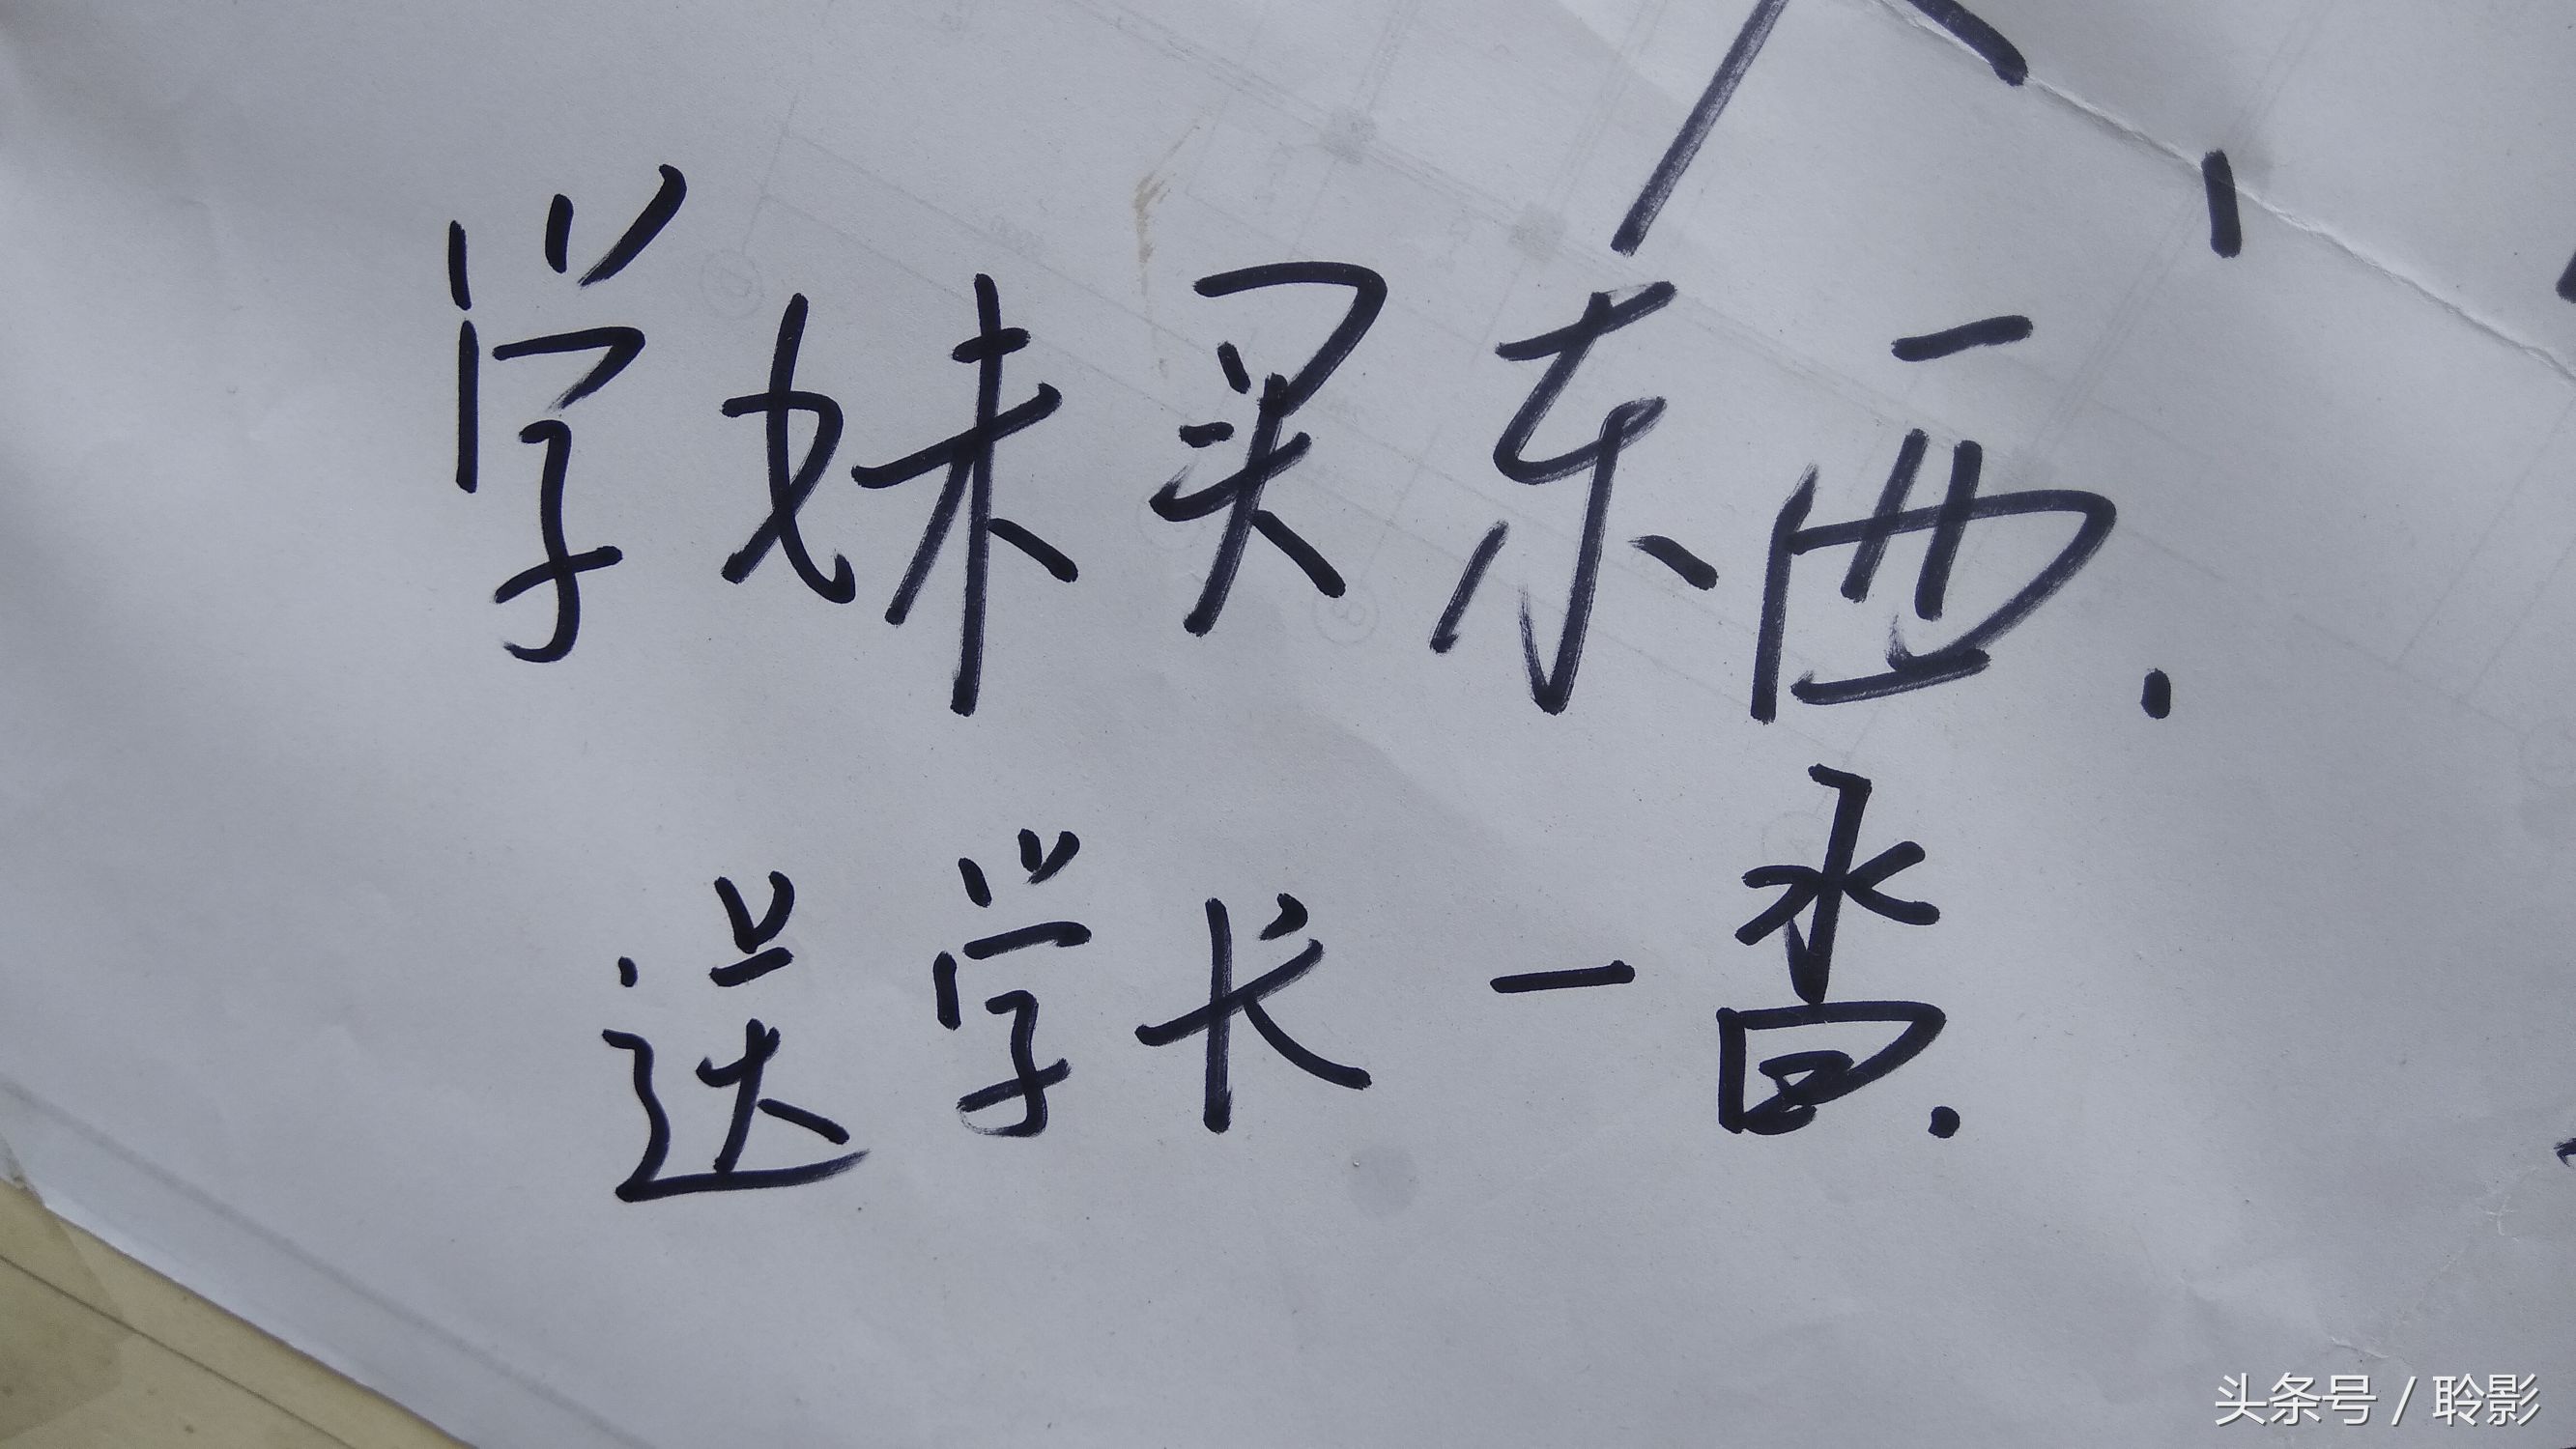 学妹买东西.
送学长一沓.
头条号 / 聆影